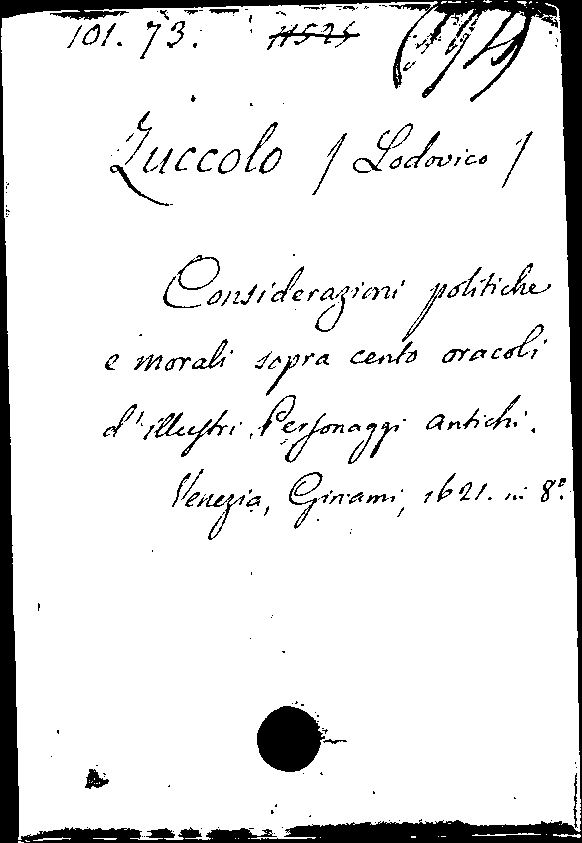 101. 73. 11525
Zuccolo / Lodovico /
Considerazioni politiche
e morali sopra cento oracoli
d'illustri Personaggi antichi.
Venezia, Ginami, 1621. in 8.º